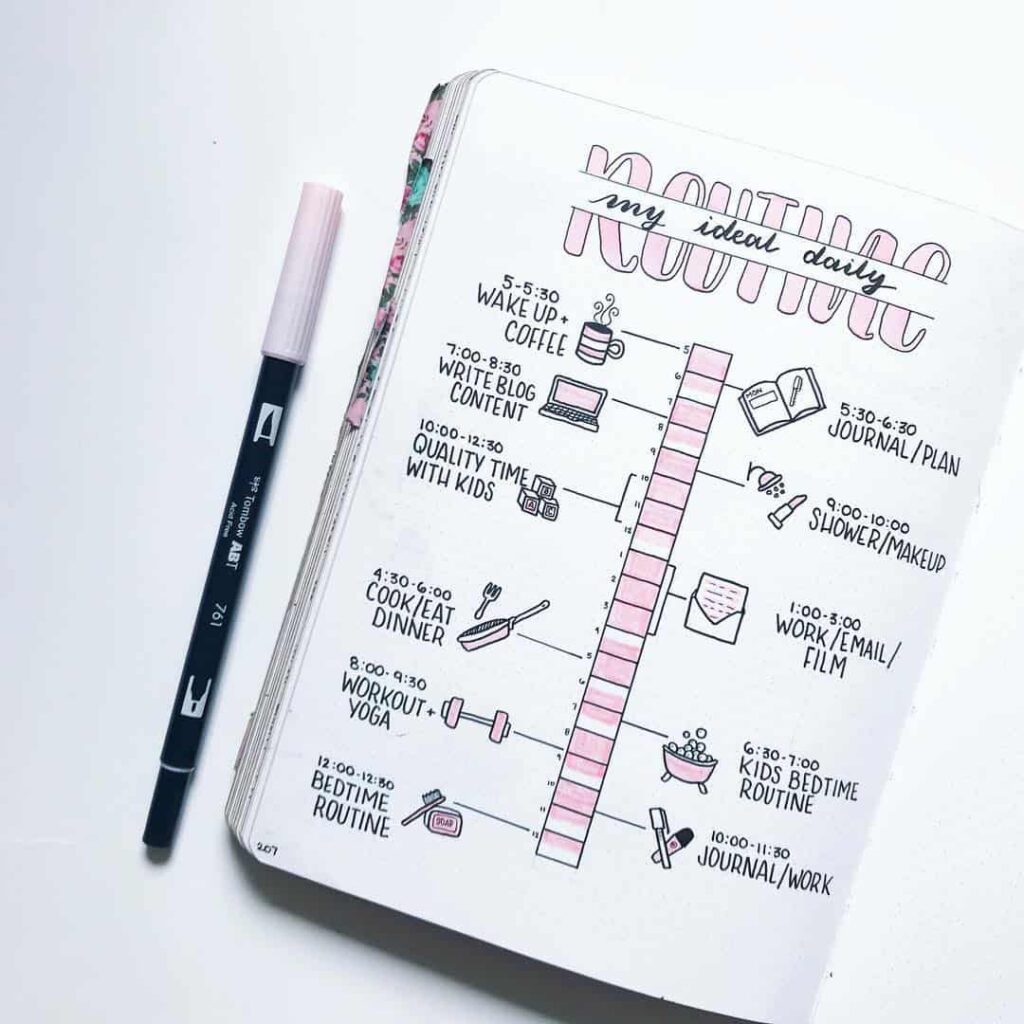 ROUTINE
my ideal daily
5-5:30
WAKE UP +
COFFEE
5:30-6:30
JOURNAL/PLAN
7:00-8:30
WRITE BLOG
CONTENT
9:00-10:00
SHOWER/MAKEUP
10:00-12:30
QUALITY TIME
WITH KIDS
1:00-3:00
WORK/EMAIL/
FILM
4:30-6:00
COOK/EAT
DINNER
6:30-7:00
KIDS BEDTIME
ROUTINE
8:00-9:30
WORKOUT +
YOGA
10:00-11:30
JOURNAL/WORK
12:00-12:30
BEDTIME
ROUTINE
5
6
7
8
9
10
11
12
1
2
3
4
5
6
7
8
9
10
11
12
MON
SOAP
207
Tombow ABT
Acid Free
761